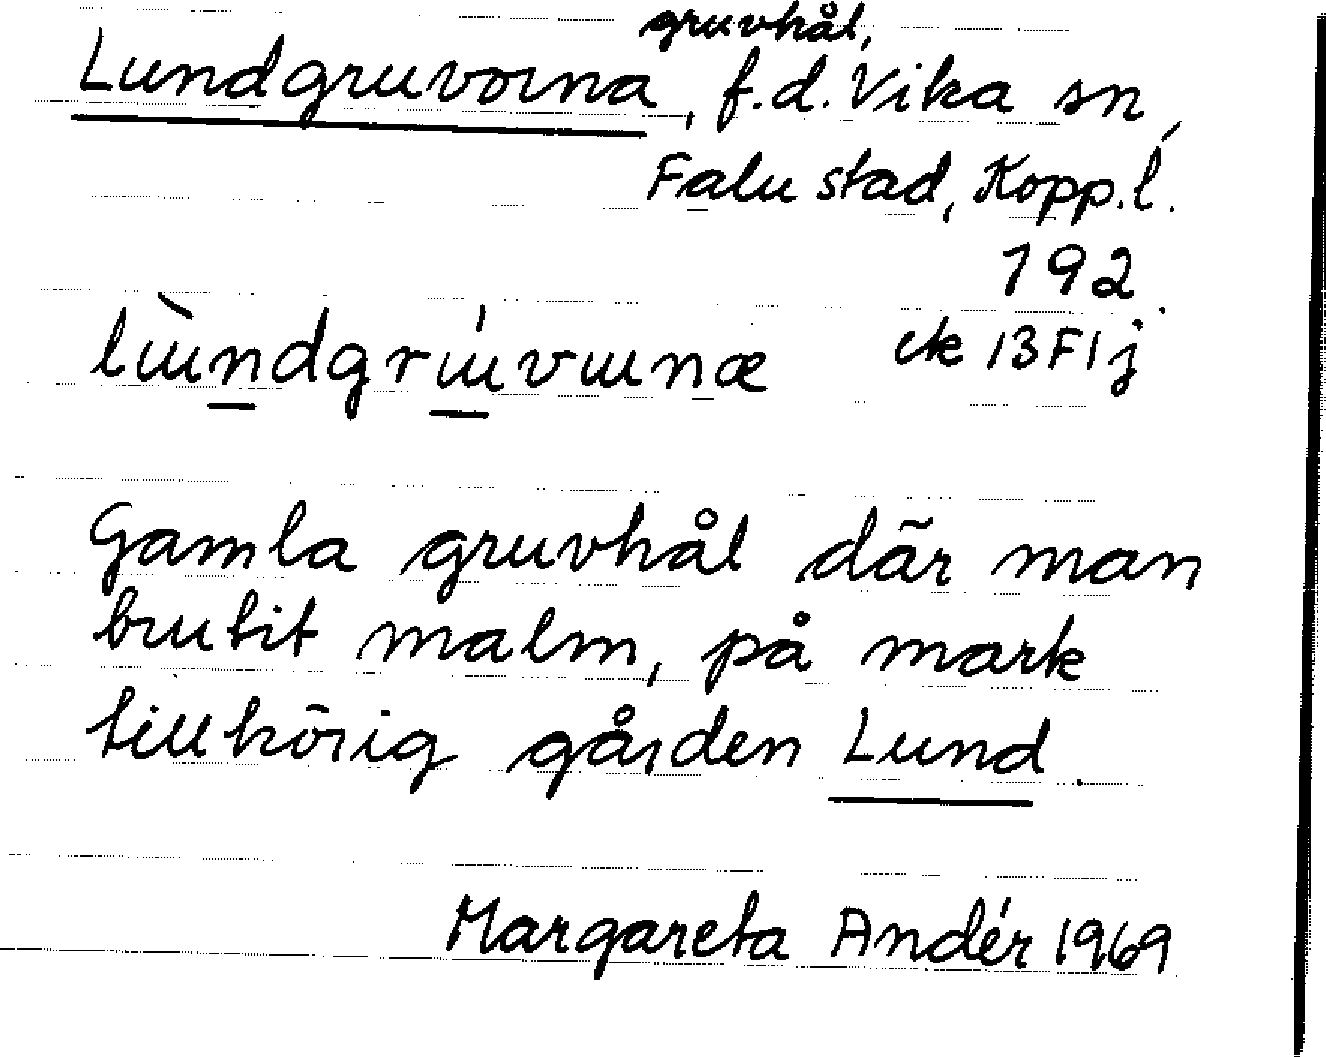 gruvhål,
Lundgruvorna, f.d. Vika sn,
Falu stad, Kopp.l.
192
ek 13F1j
Gamla gruvhål där man
brutit malm, på mark
tillhörig gården Lund.
Margareta Andér 1969